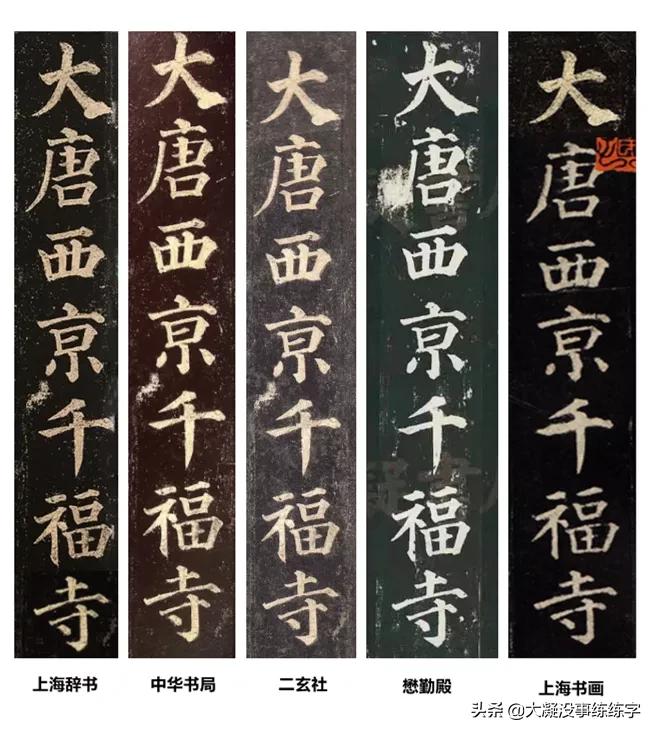 大唐西亰千福寺
大唐西亰千福寺
大唐西亰千福寺
大唐西亰千福寺
大唐西亰千福寺
上海辞书
中华书局
二玄社
懋勤殿
上海书画
头条 @大凝没事练练字